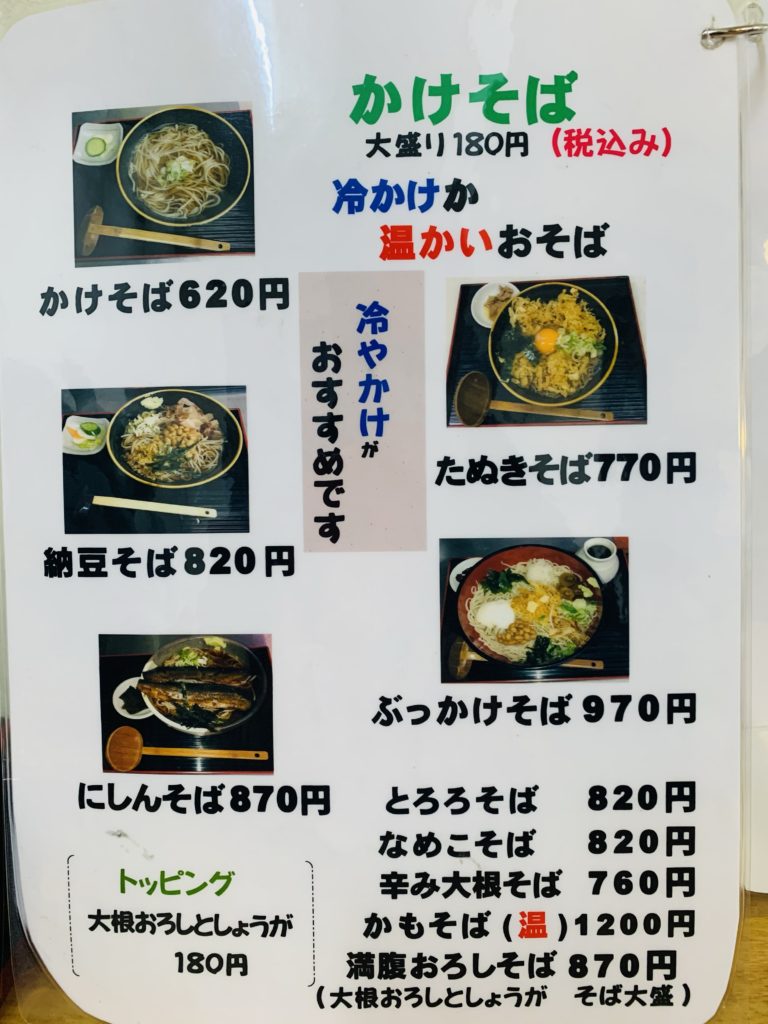 かけそば
大盛り180円 (税込み)
冷かけか
温かいおそば
かけそば620円
冷やかけが
おすすめです
たぬきそば770円
納豆そば820円
ぶっかけそば 970円
にしんそば870円
とろろそば 820円
なめこそば 820円
辛み大根そば 760円
かもそば (温) 1200円
満腹おろしそば 870円
(大根おろしとしょうが そば大盛)
トッピング
大根おろしとしょうが
180円